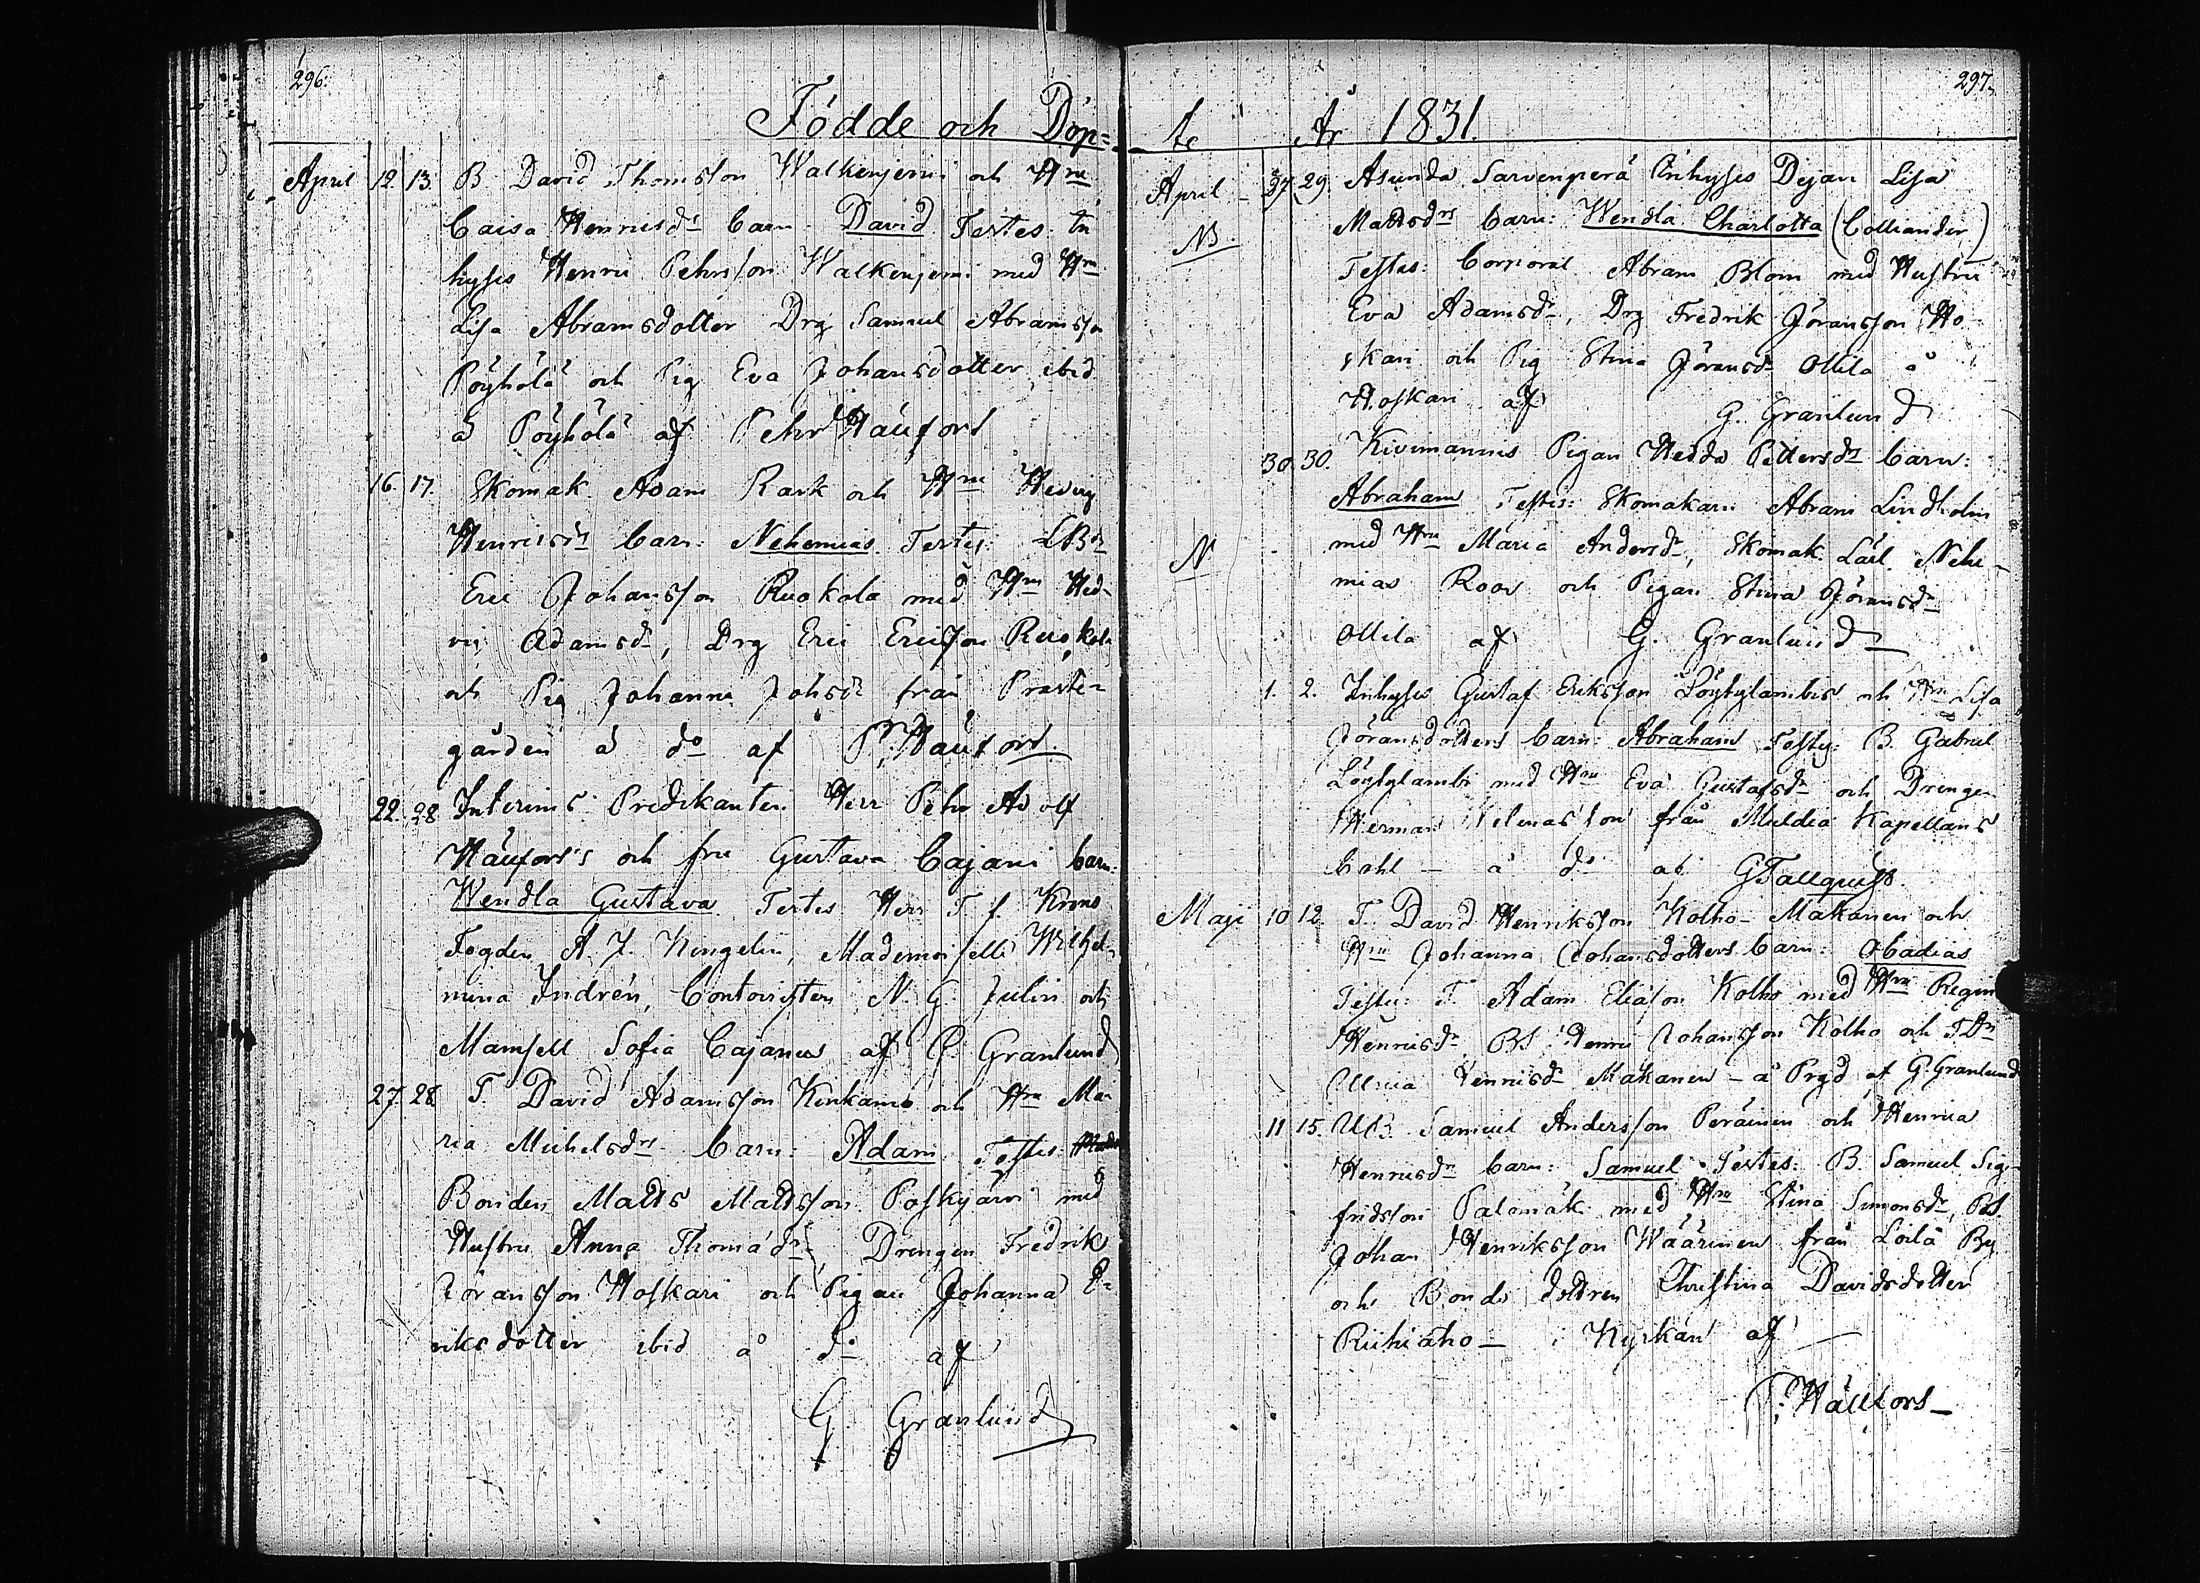 296.
Födde och Döp=
April 12 13. B. David Thomsson Walkenjerni och Hru
Caisa Henricsdr barn: David Testes In
hyses Henric Pehrsson Walkenjerni med Hru
Lisa Abramsdotter Drg Samuel Abramsson
Pöyhölä och Pig Eva Johansdotter ibid
å Pöyhölä af Pehr Häufors
16. 17. Skomak. Adam Rask och Hru Hedvig
Henricsdrs barn: Nehemias Testes: LBdn
Eric Johansson Ruokola med Hru Hed-
vig Adamsdr, Drg Eric Ericsson Ruokola
och Pig Johanna Johsdr från Präste-
gården å do af P. Häufors.
22. 28 Interims Predikanten Herr Pehr Adolf
Häufors's och fru Gustava Cajani barn:
Wendla Gustava Testes Herr T. f. Krono
Fogden A. J. Kingelin, Mademoiselle Wilhel-
mina Indrén, Contoristen N. G. Julin och
Mamsell Sofia Cajanus af G. Granlund
27. 28 T. David Adamsson Kinkamo och Hru Ma-
ria Michelsdrs barn: Adam Testes
Bonden Matts Mattsson Poskjärvi med
Hustru Anna Thomädr, Drengen Fredrik
Göransson Hoskari och Pigan Johanna E-
riksdotter ibid å do af
G. Granlund
297.
te År 1831.
April 27 29. Asunda Sarvenperä Inhyses Dejan Lisa
NB. Mattsdrs barn: Wendla Charlotta (Colliander)
Testes: Corporal Abram Blom med Hustru
Eva Adamsdr, Drg Fredrik Göransson Ho-
skari och Pig Stina Göransdr Ollila å
Hoskari af G. Granlund
30. 30. Kivimannis Pigan Hedda Pettersdrs barn:
Abraham Testes: Skomakarn Abram Lindholm
N. med Hru Maria Andersdr, Skomak. Lärl. Nehe-
mias Roos och Pigan Stina Göransdr
Ollila af G. Granlund
1. 2. Inhyses Gustaf Eriksson Löytylambis och Hru Lisa
Göransdotters barn: Abraham Testes: B. Gabriel
Löytylambi med Hru Eva Gustafsdr och Drengen
Herman från Muldia Kapellans
Bohl - å do af G Tallquist.
Maji 10 12 T. David Henriksson Kolho-Makonen och
Hru Johanna Johansdotters barn: Obadias
Testes: T. Adam Eliasson Kolho med Hru Regina
Henricsdr BS. Henric Johansson Kolho och TDr
Ulrica Henricsdr Makonen - å Prgd af G. Granlund
11 15. UB. Samuel Andersson Peräinen och Henrica
Henricsdrs barn: Samuel Testes: B. Samuel Sig-
fridsson Palomäk. med Hru Stina Simonsdr, BS.
Johan Henriksson Wäärinen från Loila By
och Bonde dottren Christina Davidsdotter
Riihiaho - i Kyrkan af -
P. Häufors -